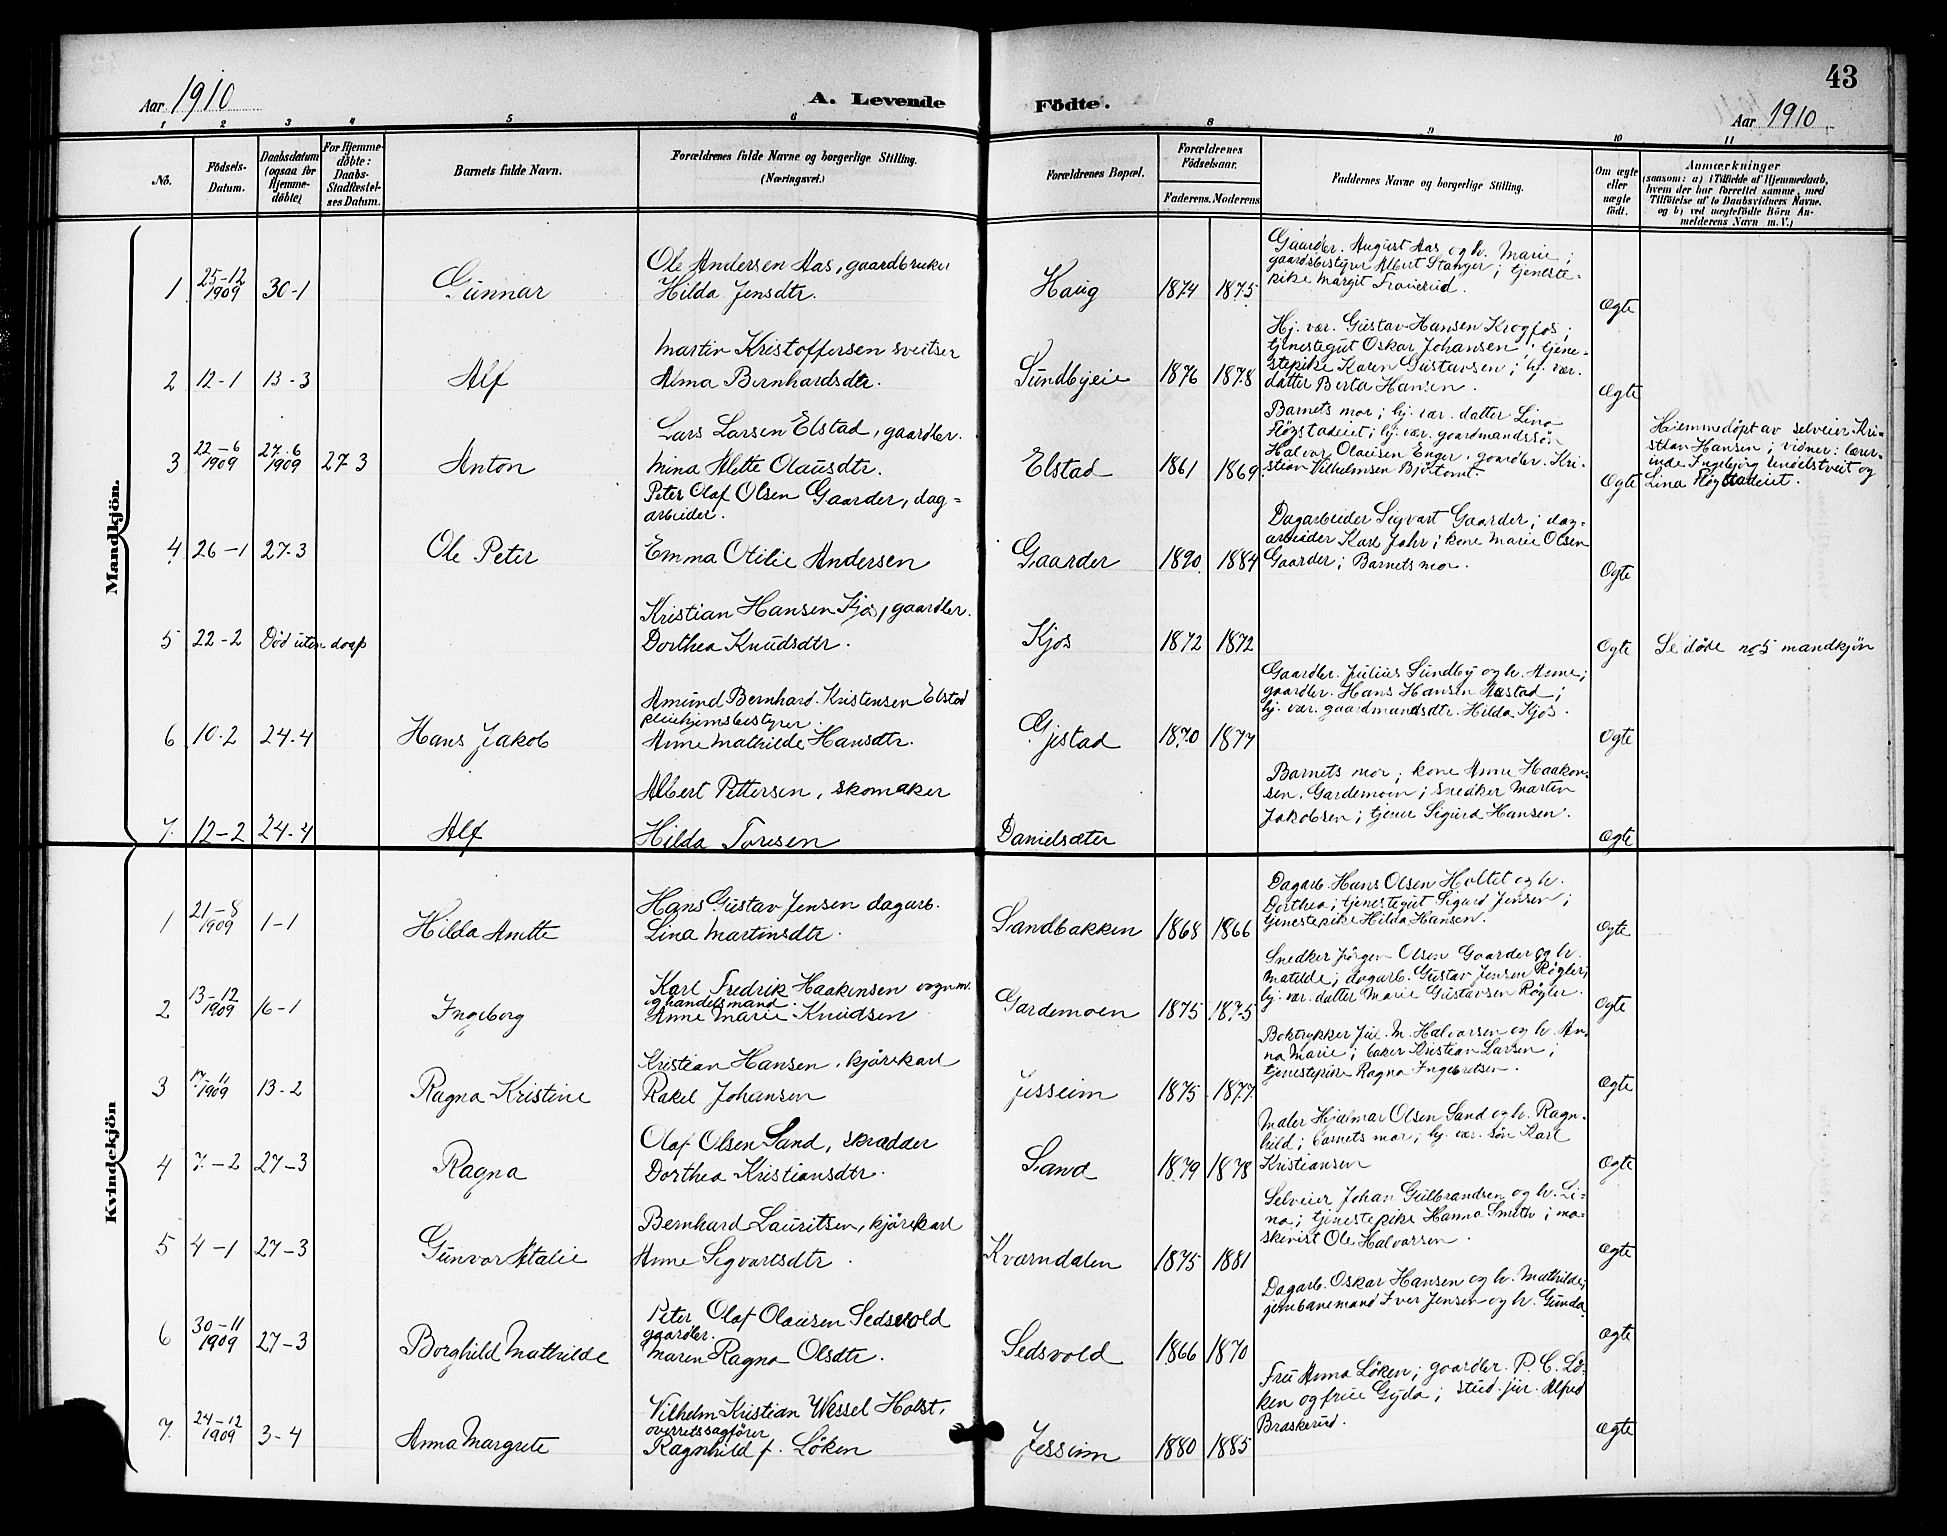 43
Aar 1910
A. Levende
Födte.
Aar 1910
1 2 3 4 5 6 8 9 10 11
No.
Födsels-
Datum.
Daabsdatum
(ogsaa for
Hjemme-
døbte)
For Hjemme-
døbte:
Daabs-
Stadfæstel-
ses Datum.
Barnets fulde Navn.
Forældrenes fulde Navne og borgerlige Stilling.
(Næringsvei.)
Forældrenes Bopæl.
Forældrenes
Födselsaar.
Faderens. Moderens
Faddernes Navne og borgerlige Stilling.
Om ægte
eller
uægte
födt.
Anmærkninger
(saasom: a) i Tilfælde af Hjemmedaab,
hvem der har forrettet samme, med
Tilföielse af to Daabsvidners Navne.
og b) ved uægtefödte Börn An-
melderens Navn m. V.)
Mandkjön.
1 25-12 1909 30-1 Gunnar
Ole Andersen Aas, gaardbruker
Hilda Jensdtr.
Haug 1874 1875
Gaardbr. August Aas og h. Marie;
gaardsbestyrer Albert Stanger; tjeneste-
pike Margit Trauerud.
Ægte
2 12-1 13-3 Alf
Martin Kristoffersen sveitser
Anna Bernhardsdtr.
Sundbyeie 1876 1878
Hj. vær. Gustav Hansen Krogfos;
tjenestegut Oskar Johansen; tjene-
stepike Karen Gustavsen; hj. vær.
datter Berta Hansen.
Ægte
3 22-6 1909 27-6 1909 27-3 Anton
Lars Larsen Elstad, gaardbr.
Mina Alette Olausdtr.
Elstad 1861 1869
Barnets mor; hj. vær. datter Lina
Fløgstadeiet; hj. vær. gaardmandssøn
Halvor Olausen Enger, gaardbr. Kri-
stian Vilhelmsen Bjøltomt.
Ægte
Hjemmedøpt av selveier Kri-
stian Hansen; vidner: lærer-
inde Ingebjørg og
Lina Fløgstadeiet.
4 26-1 27-3 Ole Peter
Peter Olaf Olsen Gaarder, dag-
arbeider.
Emma Otilie Andersen
Gaarder 1890 1884
Dagarbeider Sigvart Gaarder; dag-
arbeider Karl Jahr; kone Marie Olsen
Gaarder; Barnets mor.
Ægte
5 22-2 Død uten daap
Kristian Hansen Kjos, gaardbr.
Dorthea Knudsdtr.
Kjos 1872 1872
Ægte
Se døde no 5 mandkjøn
6 10-2 24-4 Hans Jakob
Amund Bernhard Kristensen Elstad
pleiehjemsbestyrer.
Anne Mathilde Hansdtr.
Gjestad 1870 1877
Gaardbr. Julius Sundby og h. Anne;
gaardbr. Hans Hansen Aastad;
hj. vær. gaardmandsdtr. Hilda Kjos.
Ægte
7. 12-2 24-4 Alf
Albert Pettersen, skomaker
Hilda Toresen
Danielsæter
Barnets mor; kone Anne Haakon-
sen, Gardemoen; snedker Martin
Jakobsen; tjener Sigurd Hansen.
Ægte
Kvindekjön
1 21-8 1909 1-1 Hilda Anette
Hans Gustav Jensen dagarb.
Lina Martinsdtr.
Sandbakken 1868 1866
Dagarb. Hans Olsen Holtet og h.
Dorthea; tjenestegut Sigurd Jensen;
tjenestepike Hilda Hansen.
Ægte
2 13-12 1909 16-1 Ingeborg
Karl Fredrik Haakensen vognm.
og handelsmand.
Anne Marie Knudsen
Gardemoen 1875 1875
Snedker Jörgen Olsen Gaarder og h.
Matilde; dagarb. Gustav Jensen Røgler;
hj. vær. datter Marie Gustavsen Røgler.
Ægte
3 17-11 1909 13-2 Ragna Kristine
Kristian Hansen, kjørekarl
Rakel Johansen
Jesseim 1875 1877
Boktrykker Jul. M. Halvorsen og h. An-
na Marie; baker Kristian Larsen;
tjenestepike Ragna Ingebretsen.
Ægte
4 7-2 27-3 Ragna
Olaf Olsen Sand, skrædder
Dorthea Kristiansdtr.
Sand 1879 1878
Maler Hjalmar Olsen Sand og h. Ragn-
hild; barnets mor; hj. vær. søn Karl
Kristiansen
Ægte
5 4-1 27-3 Gunvor Atalie
Bernhard Lauritsen, kjørekarl
Anne Sigvartsdtr.
Kværndalen 1875 1881
Selveier Johan Gulbrandsen og h. Li-
na; tjenestepike Hanna Smith; ma-
skinist Ole Halvorsen.
Ægte
6 30-11 1909 27-3 Borghild Mathilde
Peter Olaf Olausen Sedsvold
gaardbr.
Maren Ragna Olsdtr.
Sedsvold 1866 1870
Dagarb. Oskar Hansen og h. Mathilde;
jernbanemand Iver Jensen og h. Gunda
Ægte
7. 24-12 1909 3-4 Anna Margrete
Vilhelm Kristian Wessel Holst,
overretssagfører
Ragnhild f. Løken
Jesseim 1880 1885
Fru Anna Løken; gaardbr. P. C. Lö-
ken og frue Gyda; stud. jur. Alfred
Braskerud.
Ægte